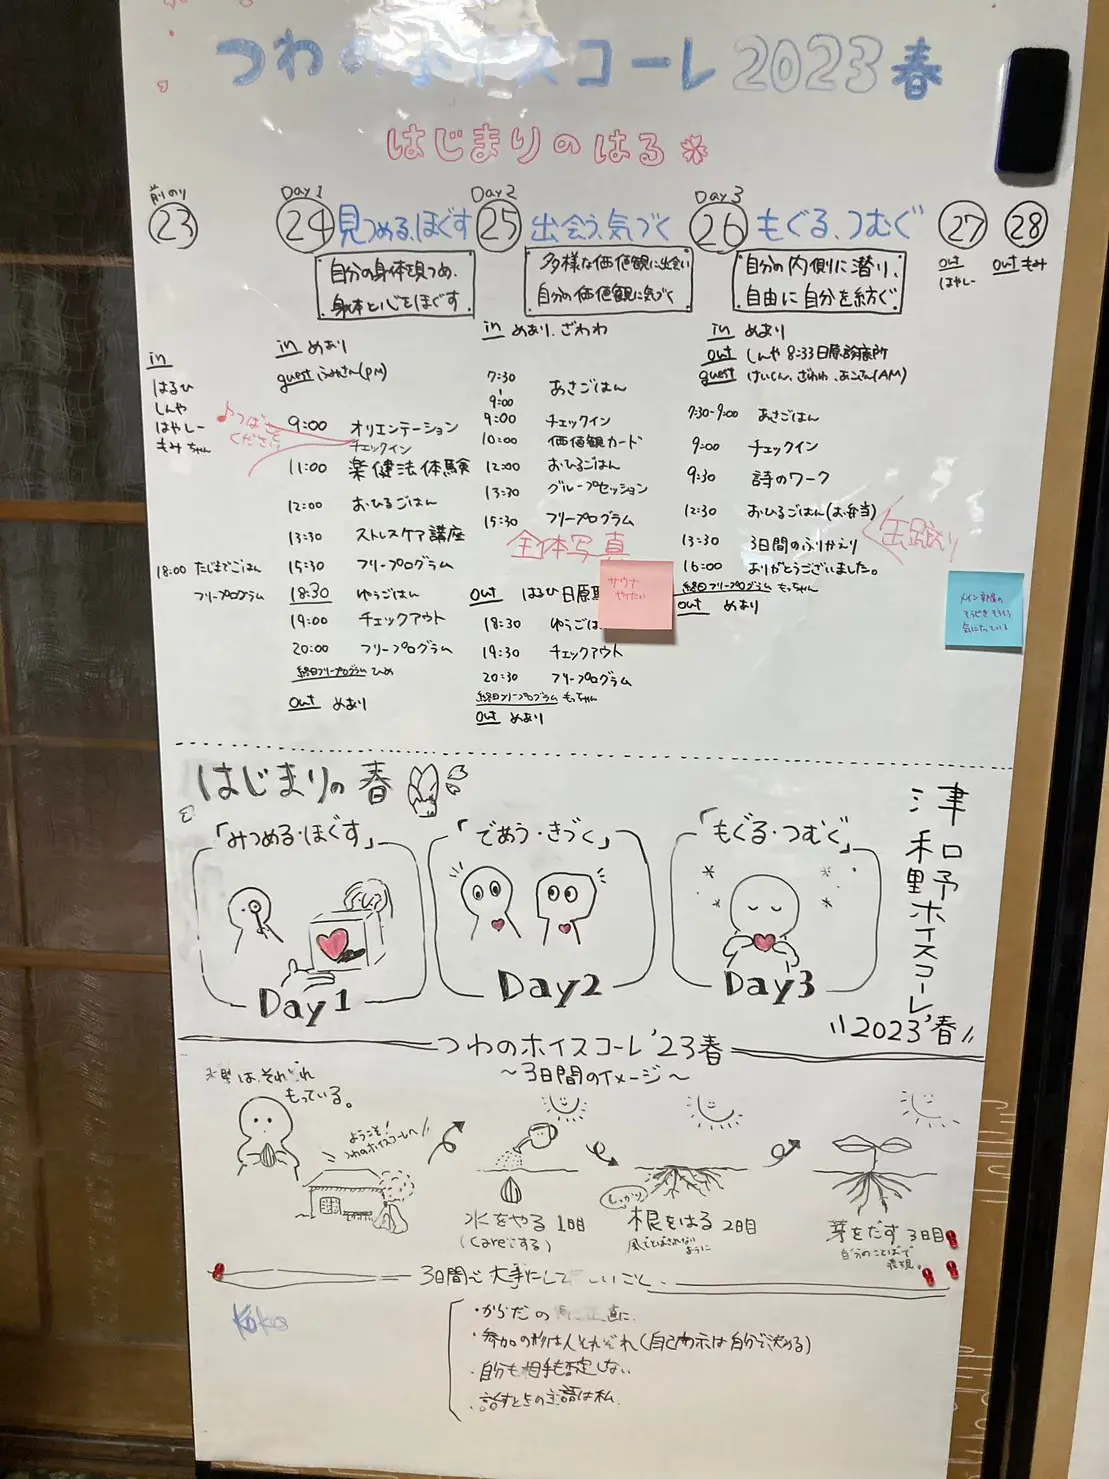 つわのホイスコーレ2023春
はじまりのはる
前のり
23
in
はるひ
しんや
はやしー
もみちゃん
18:00 たじまでごはん
フリープログラム
Day1
24 見つめる、ほぐす
自分の身体を見つめ、
身体と心をほぐす
in めあり
guest ふみさん(PM)
9:00 オリエンテーション
チェックイン
11:00 楽健法体験
12:00 おひるごはん
13:30 ストレスケア講座
15:30 フリープログラム
18:30 ゆうごはん
19:00 チェックアウト
20:00 フリープログラム
終日フリープログラム ひめ
out めあり
Day2
25 出会う、気づく
多様な価値観に出会い
自分の価値観に気づく
in めあり、ざわわ
7:30
9:00 あさごはん
9:00 チェックイン
10:00 価値観カード
12:00 おひるごはん
13:30 グループセッション
15:30 フリープログラム
全体写真
サウナ
やりたい
out はるひ 日原
18:30 ゆうごは
19:30 チェックアウト
20:30 フリープログラム
終日フリープログラム もっちゃん
out めあり
Day3
26 もぐる、つむぐ
自分の内側に潜り、
自由に自分を紡ぐ
in めあり
out しんや 8:33日原診療所
guest けいくん、ざわわ、あこさん(AM)
7:30-9:00 あさごはん
9:00 チェックイン
9:30 詩のワーク
12:30 おひるごはん(お弁当)
13:30 3日間のふりかえり
16:00 ありがとうございました。
終日フリープログラム もっちゃん
out めあり
27
out
はやしー
28
out もみ
メイン部屋の
気になっている
はじまりの春
「みつめる・ほぐす」
Day1
「であう・きづく」
Day2
「もぐる・つむぐ」
Day3
津和野ホイスコーレ
2023'春
つわのホイスコーレ'23春
～3日間のイメージ～
は、それぞれ
もっている。
ようこそ!
つわのホイスコーレへ!
水をやる 1日目
(careする)
しっかり
根をはる 2日目
風でとばされない
ように
芽をだす 3日目
自分のことばで
表現。
3日間 大事にして しいこと
・からだの に正直に
・参加の形は人それぞれ(自己開示は自分で決める)
・自分も相手も否定しない
・話すときの主語は私
Koko